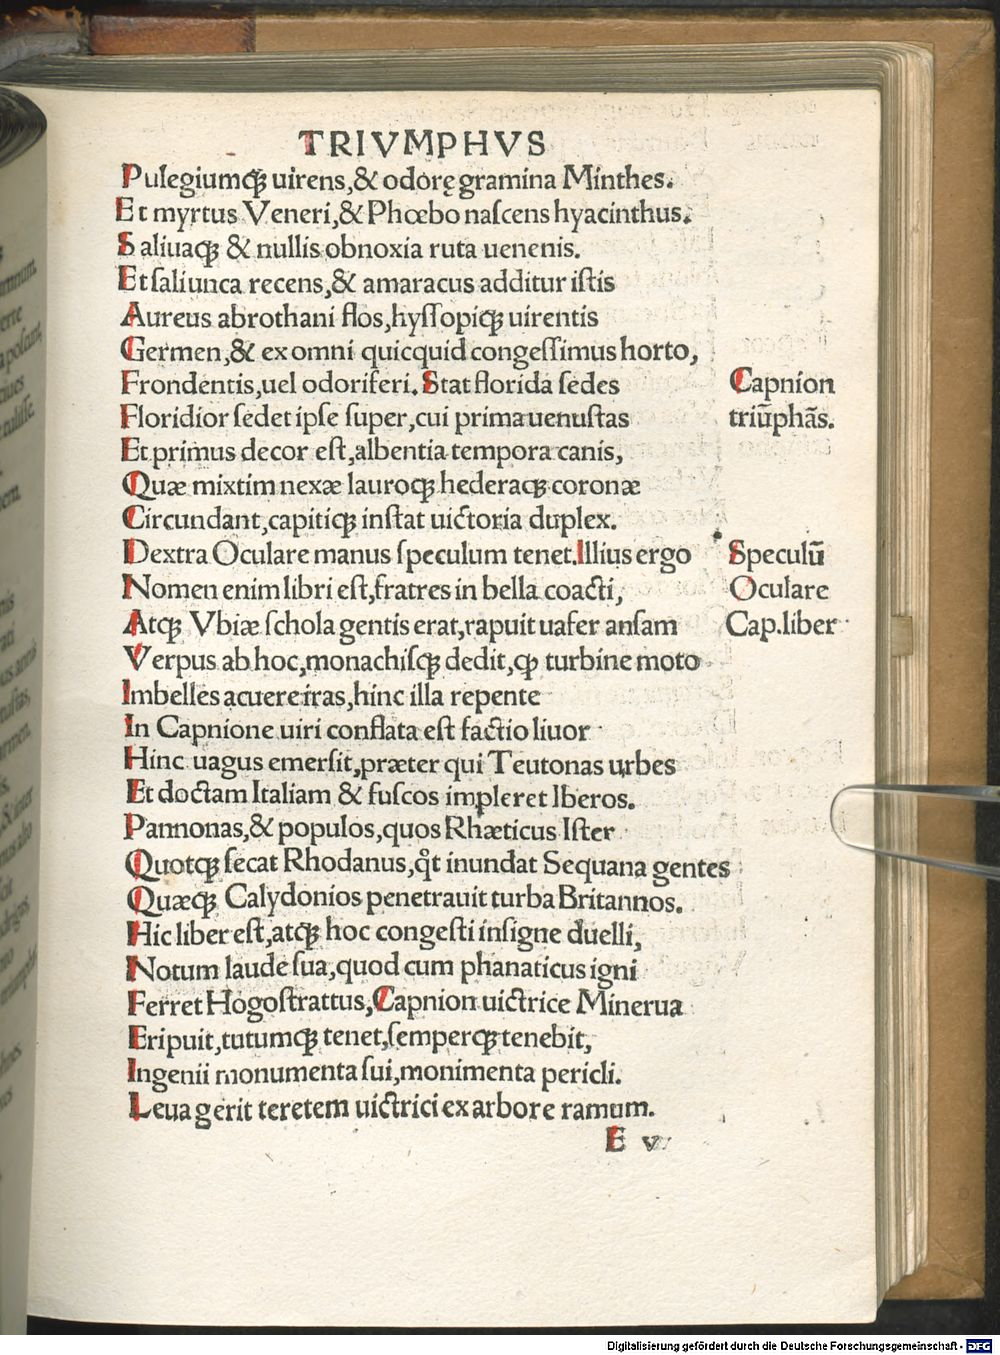 TRIVMPHVS
Pulegiumq́; uirens,& odorę gramina Minthes.
Et myrtus Veneri,& Phœbo naſcens hyacinthus.
Saliuaq́; & nullis obnoxia ruta uenenis.
Et ſaliunca recens,& amaracus additur iſtis
Aureus abrothani flos,hyſſopiq́; uirentis
Germen,& ex omni quicquid congeſſimus horto,
Frondentis,uel odoriferi. Stat florida ſedes
Capnion
Floridior ſedet ipſe ſuper,cui prima uenuſtas
triūphãs.
Et primus decor eſt,albentia tempora canis,
Quæ mixtim nexæ lauroq́; hederaq́; coronæ
Circundant,capitiq́; inſtat uictoria duplex.
Dextra Oculare manus ſpeculum tenet.Illius ergo
Speculū
Nomen enim libri eſt,fratres in bella coacti,
Oculare
Atq́; Vbiæ ſchola gentis erat,rapuit uafer anſam
Cap.liber
Verpus ab hoc,monachiſq́; dedit,ꝙ turbine moto
Imbelles acuere iras,hinc illa repente
In Capnione uiri conflata eſt factio liuor
Hinc uagus emerſit,præter qui Teutonas urbes
Et doctam Italiam & fuſcos impleret Iberos.
Pannonas,& populos,quos Rhæticus Iſter
Quotq́; ſecat Rhodanus,qͦt inundat Sequana gentes
Quæq́; Calydonios penetrauit turba Britannos.
Hic liber eſt,atq́; hoc congeſti inſigne duelli,
Notum laude ſua,quod cum phanaticus igni
Ferret Hogoſtrattus,Capnion uictrice Minerua
Eripuit,tutumq́; tenet,ſemperq́; tenebit,
Ingenii monumenta ſui,monimenta pericli.
Leua gerit teretem uictrici ex arbore ramum.
E v
Digitalisierung gefördert durch die Deutsche Forschungsgemeinschaft - DFG